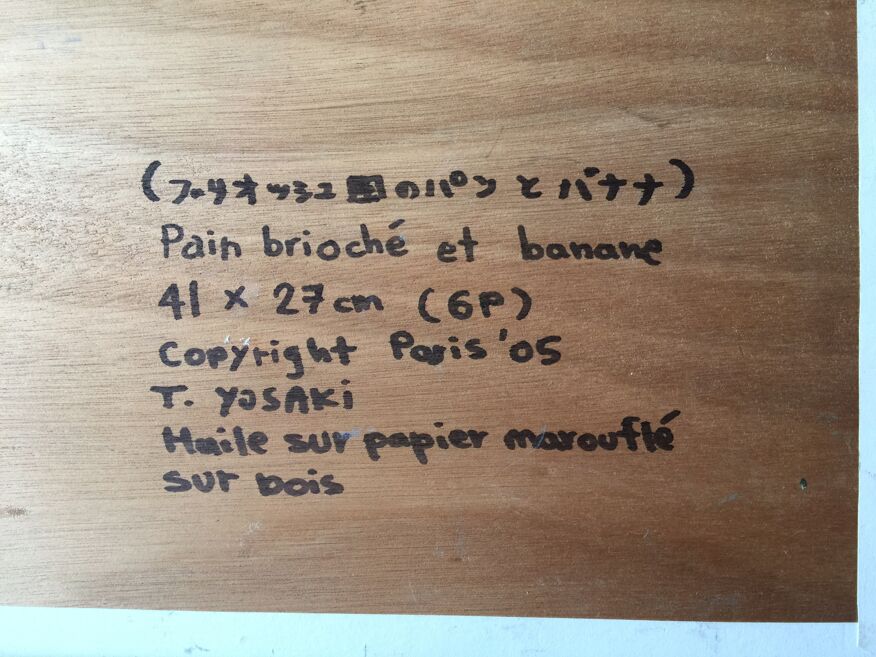 (ブリオッシュ風のパンとバナナ)
Pain brioché et banane
41 x 27 cm (6P)
Copyright Paris '05
T. YOSAKi
Huile sur papier marouflé
sur bois